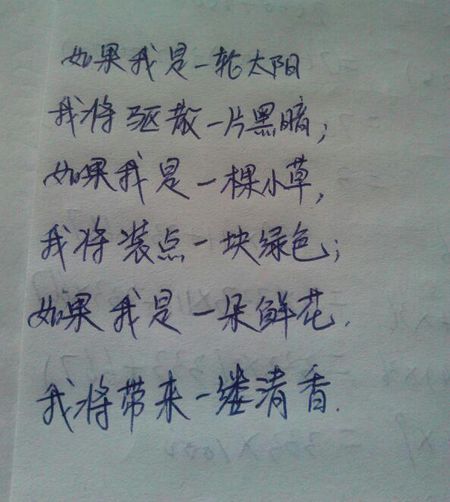 如果我是一轮太阳
我将驱散一片黑暗；
如果我是一棵小草，
我将装点一块绿色；
如果我是一朵鲜花.
我将带来一缕清香.